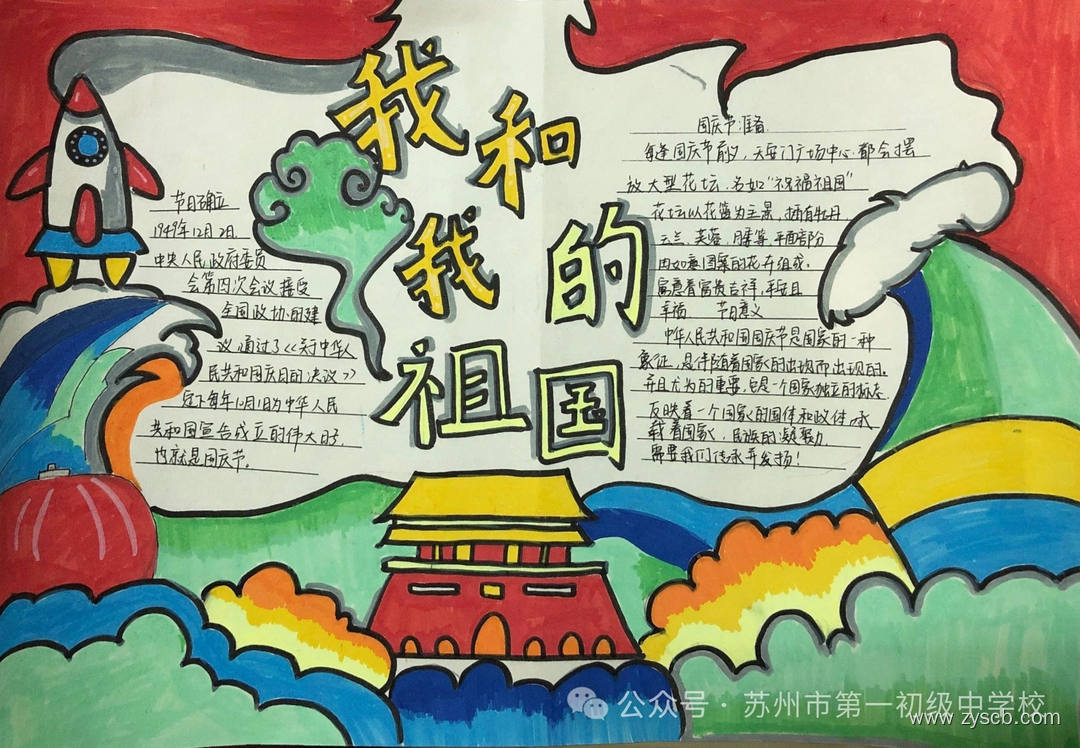 我和
我的
祖国
节日确立
1949年12月2日,
中央人民政府委员
会第四次会议接受
全国政协的建
议,通过了《关于中华人
民共和国国庆日的决议》
定下每年10月1日为中华人民
共和国宣告成立的伟大日子,
也就是国庆节。
国庆节准备
每逢国庆节前夕,天安门广场中心都会摆
放大型花坛,名如“祝福祖国”
花坛以花篮为主景,插有牡丹,
玉兰,芙蓉,月季等,平面部分
由如意图案的花卉组成,
寓意着富贵吉祥,平安且
幸福. 节日意义
中华人民共和国国庆节是国家的一种
象征,是伴随着国家的出现而出现的,
并且尤为的重要,它是一个国家独立的标志
反映着一个国家的国体和政体,承
载着国家,民族的凝聚力,
需要我们传承并发扬!
公众号·苏州市第一初级中学校
www.zyscb.com